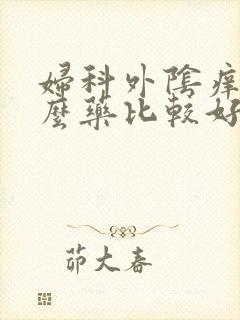 婦科外陰痒
麼藥比較好
茆大春